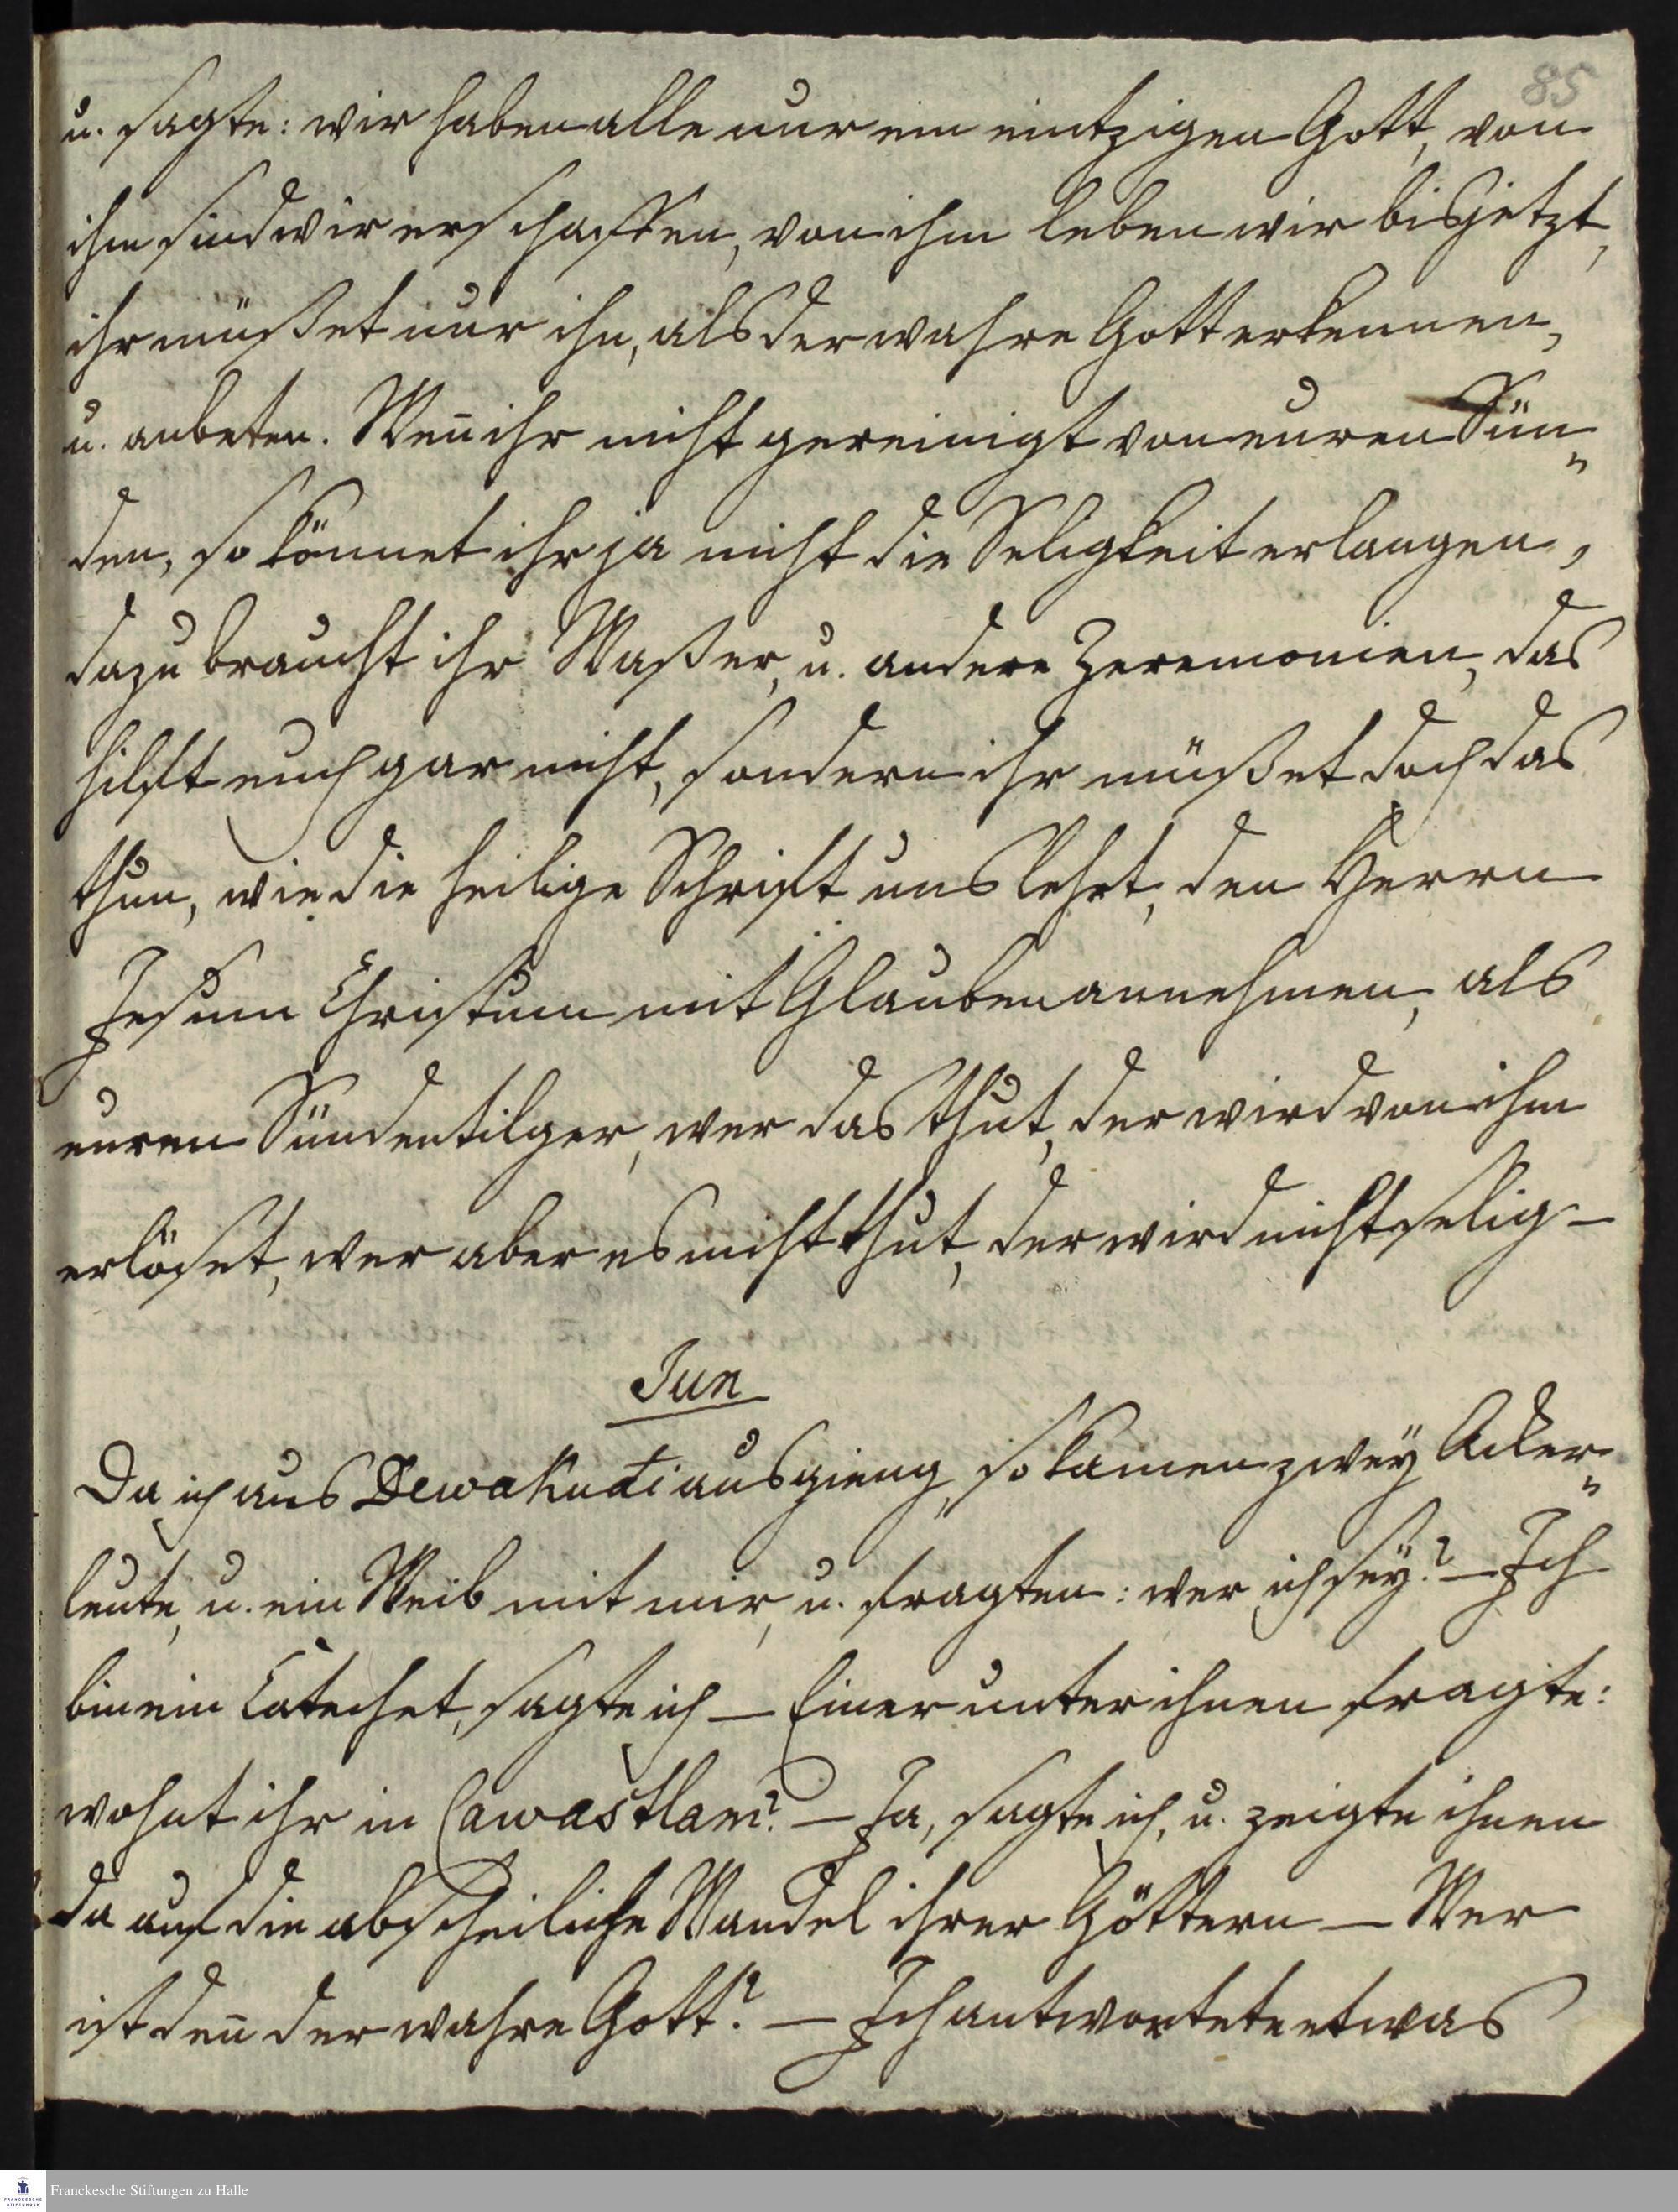 85
u. sagte: wir haben alle nur ein eintzigen Gott, von
ihm sind wir erschaffen, von ihm leben wir bis jetzt,
ihr müßet nur ihn, als der wahre Gott erkennen,
u. anbeten. Weñ ihr nicht gereinigt von euren Sün„
den, so könnet ihr ja nicht die Seligkeit erlangen,
dazu braucht ihr Waßer, u. andere Zeremonien, das
hilft euch gar nicht, sondern ihr müßet doch das
thun, wie die heilige Schrift uns lehrt, den Herrn
Jesum Christum mit Glauben annehmen, als
euren Sündentilger, wer das thut, der wird von ihm
erlöset, wer aber es nicht thut, der wird nicht selig –
Jun
Da ich aus Dewakudi ausgieng, so kamen zwey Acker„
leute, u. ein Weib mit mir, u. fragten: wer ich sey? – Ich
bin ein Catechet, sagte ich – Einer unter ihnen fragte:
wohnt ihr in Cawastlam? – Ja, sagte ich, u. zeigte ihnen
da auf die abscheiliche Wandel ihrer Göttern – Wer
ist deñ der wahre Gott? – Ich antwortete etwas
Franckesche Stiftungen zu Halle